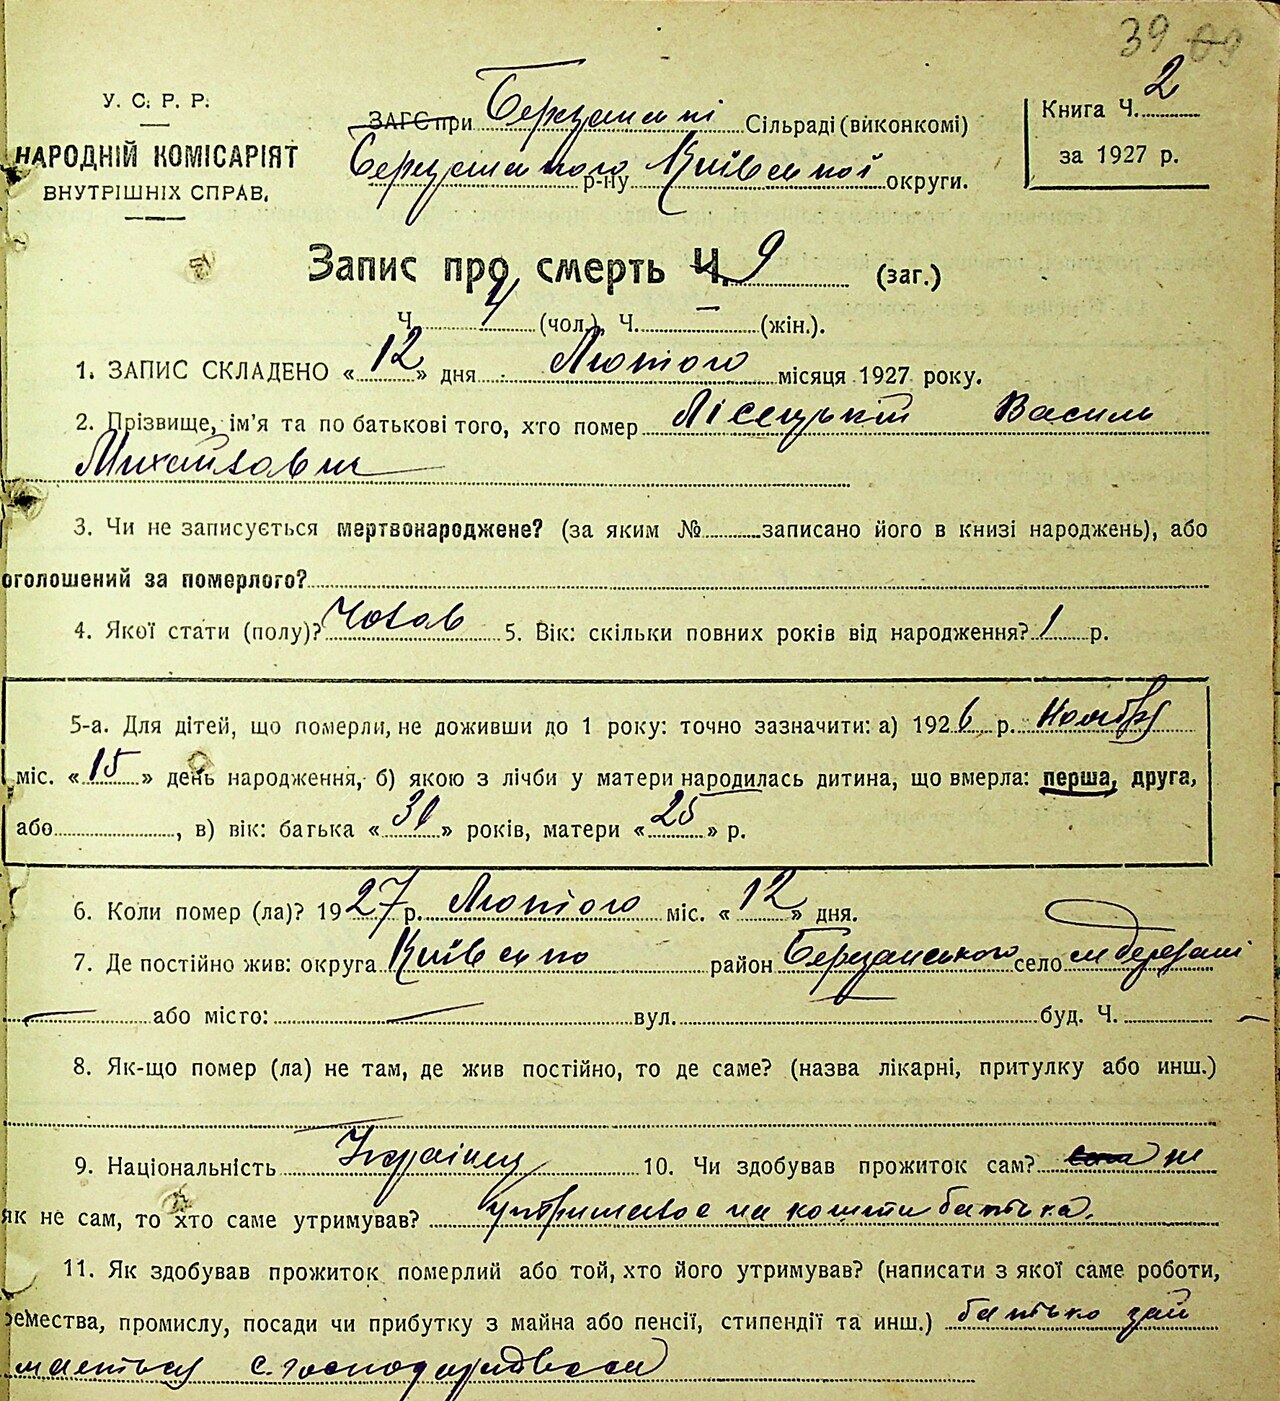 39
У. С. Р. Р.
НАРОДНІЙ КОМІСАРІЯТ
ВНУТРІШНІХ СПРАВ.
ЗАГС при Березанскі Сільраді (виконкомі)
Березанского р-ну Київскої округи.
Книга Ч. 2
за 1927 р.
Запис про смерть Ч. 9 (заг.)
Ч. 4 (чол.) Ч. — (жін.).
1. ЗАПИС СКЛАДЕНО «12» дня Лютого місяця 1927 року.
2. Прізвище, ім'я та по батькові того, хто помер Лісецькій Василь
Михайлович
3. Чи не записується мертвонароджене? (за яким № записано його в книзі народжень), або
оголошений за померлого?
4. Якої стати (полу)? Чолов 5. Вік: скільки повних років від народження? 1 р.
5-а. Для дітей, що померли, не доживши до 1 року: точно зазначити: а) 1926 р. Ноября
міс. «15» день народження, б) якою з лічби у матери народилась дитина, що вмерла: перша, друга,
або , в) вік: батька «31» років, матери «25» р.
6. Коли помер (ла)? 1927 р. Лютого міс. «12» дня.
7. Де постійно жив: округа Київско район Березанського село м Березані
— або місто: — вул. буд. Ч. —
8. Як-що помер (ла) не там, де жив постійно, то де саме? (назва лікарні, притулку або инш.)
9. Національність Українец 10. Чи здобував прожиток сам? сам не
як не сам, то хто саме утримував? утримавсе на кошти батька.
11. Як здобував прожиток померлий або той, хто його утримував? (написати з якої саме роботи,
ремества, промислу, посади чи прибутку з майна або пенсії, стипендії та инш.) батько зай
маеться с. господарством